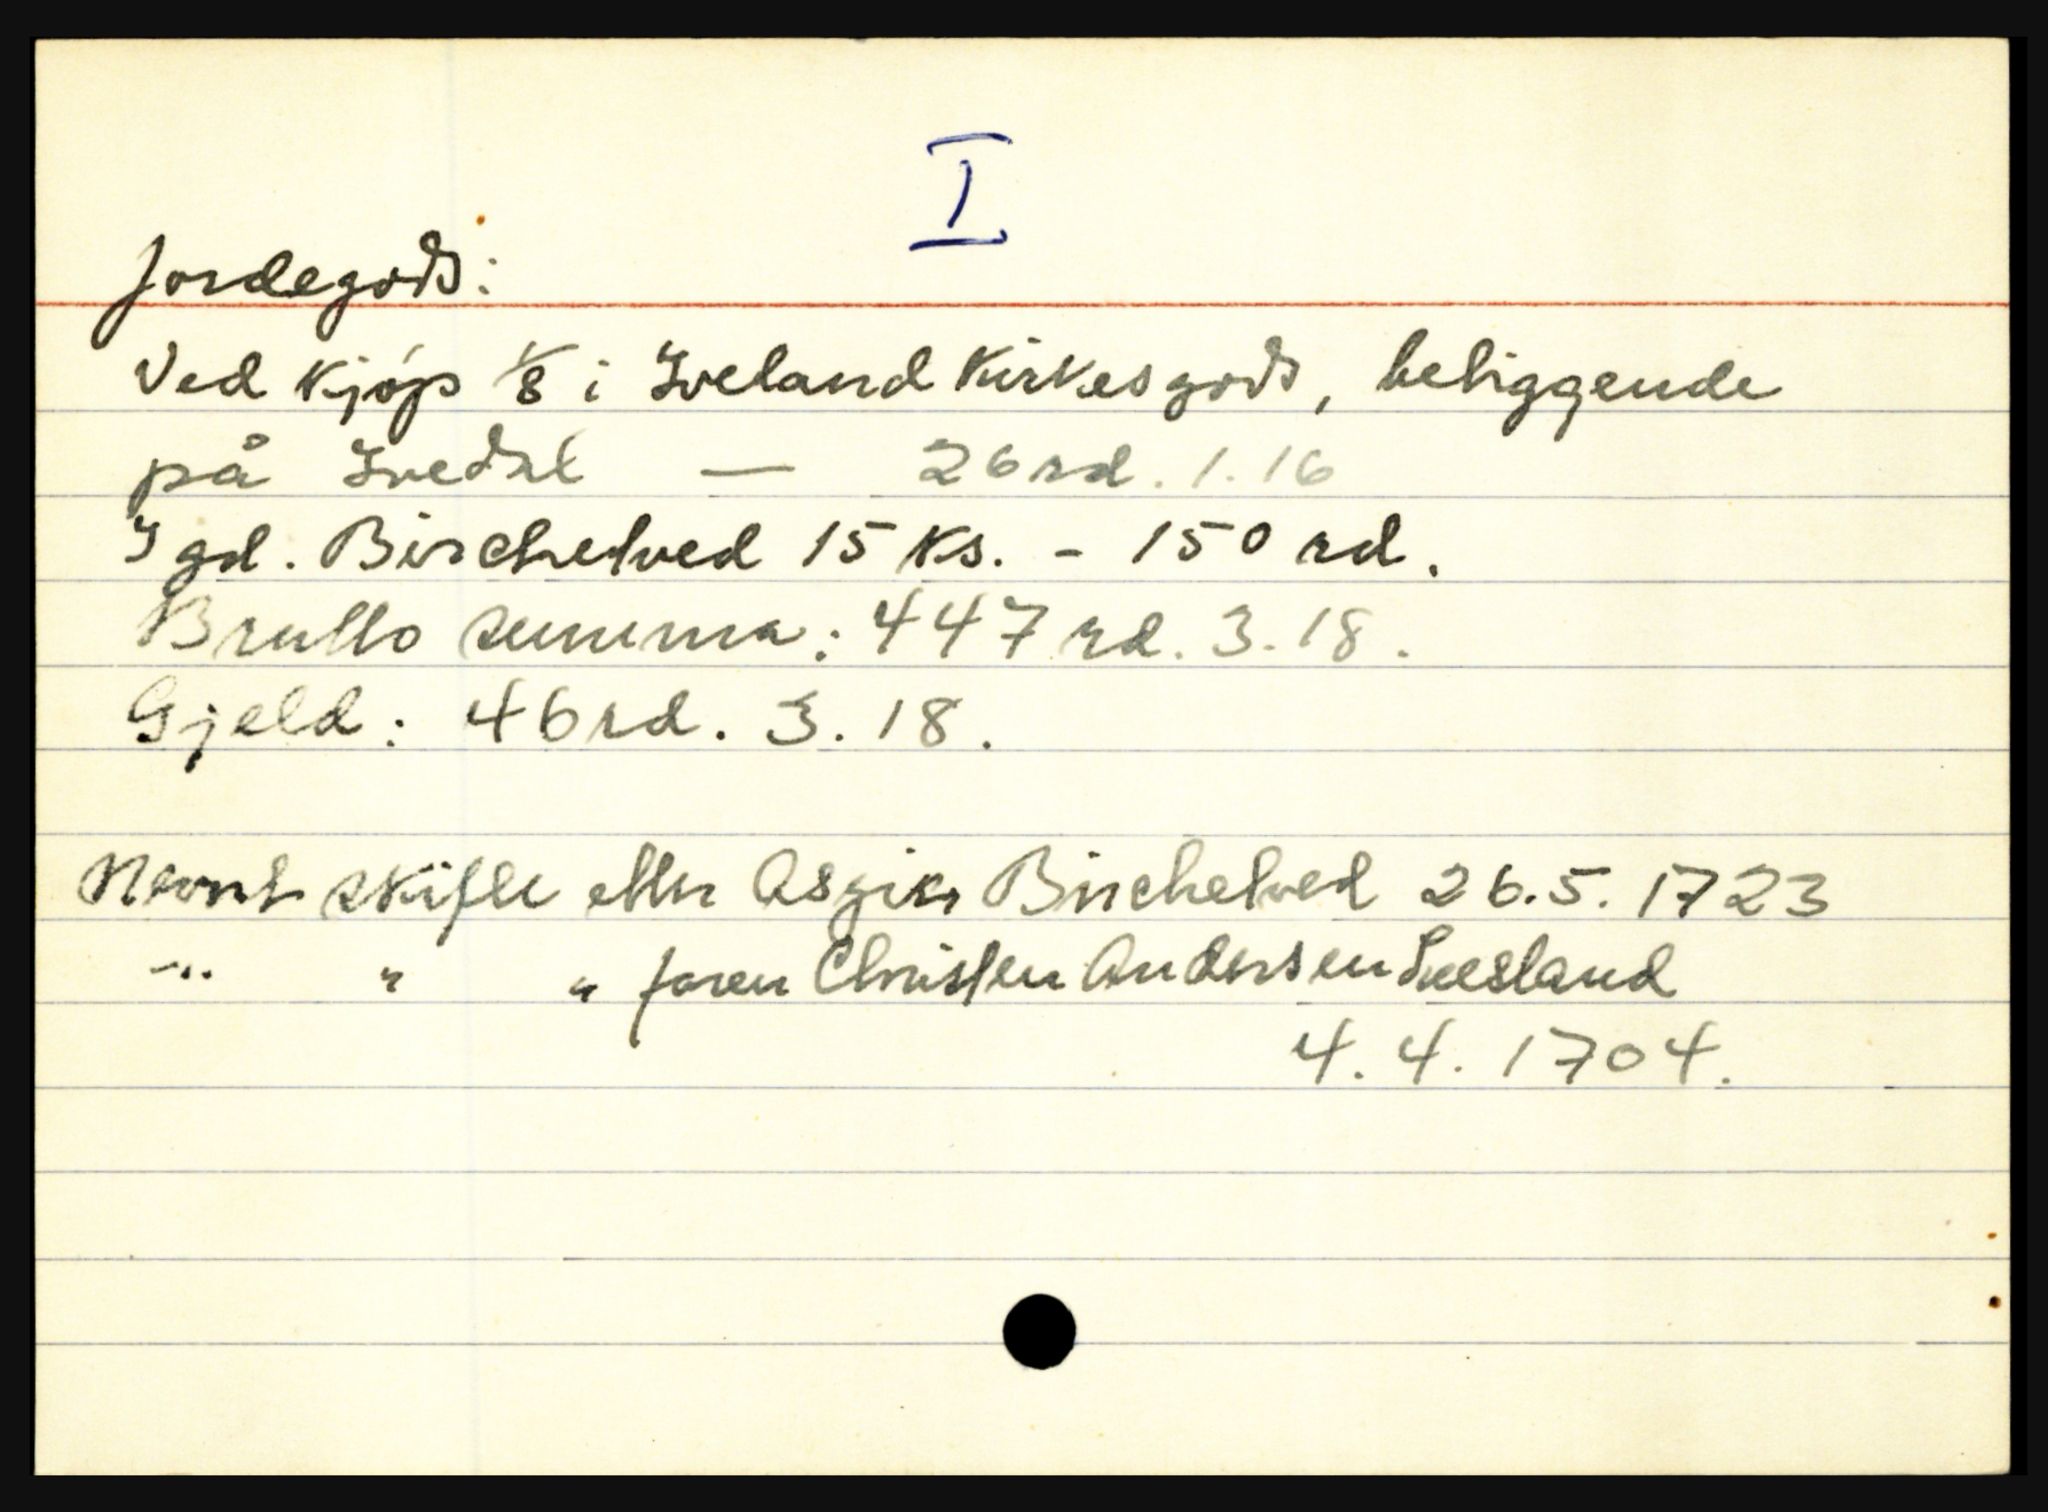 I
Jordegods:
Ved kjøp 1/8 i Iveland Kirkesgods, beliggende
på Ivedal — 26 rd. 1. 16
I gd. Birchelved 15 ks. - 150 rd.
Brutto summa: 447 rd. 3. 18.
Gjeld: 46 rd. 3. 18.
Nevnt skifte etter Birchelved 26.5. 1723
-" " " faren Christen Andersen
4. 4. 1704.